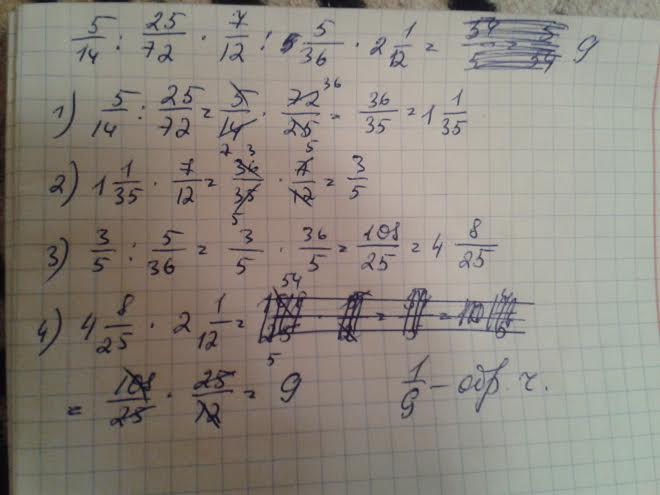 5/14 : 25/72 · 7/12 : 5/36 · 2 1/12 = 9
1) 5/14 : 25/72 = 5/14 · 72/25 = 36/35 = 1 1/35
2) 1 1/35 · 7/12 = 36/35 · 7/12 = 3/5
3) 3/5 : 5/36 = 3/5 · 36/5 = 108/25 = 4 8/25
4) 4 8/25 · 2 1/12 =
= 108/25 · 25/12 = 9 1/9 - обр. ч.